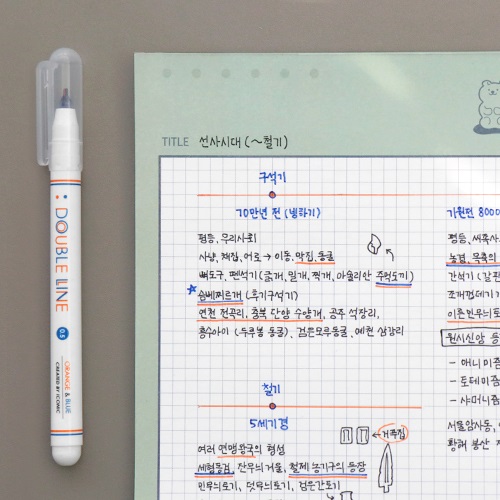 DOUBLE LINE
0.5
ORANGE & BLUE
CREATED BY ICONIC
TITLE 선사시대 (~철기)
구석기
70만년 전 (빙하기)
평등, 무리사회
사냥, 채집, 어로 → 이동, 막집, 동굴
뼈도구, 뗀석기 (긁개, 밀개, 찍개, 아슐리안 주먹도끼)
슴베찌르개 (후기구석기)
연천 전곡리, 충북 단양 수양개, 공주 석장리,
흥수아이 (두루봉 동굴), 검은모루동굴, 예천 삼강리
철기
5세기경
거푸집
여러 연맹왕국의 형성
세형동검, 잔무늬 거울, 철제 농기구의 등장
민무늬토기, 덧띠토기, 검은간토기
기원전 8000
평등, 씨족사
농경, 목축의
간석기 (갈판
조개껍데기
이른민무늬토
원시신앙 등
- 애니미즘
- 토테미즘
- 샤머니즘
서울암사동,
황해 봉산 지